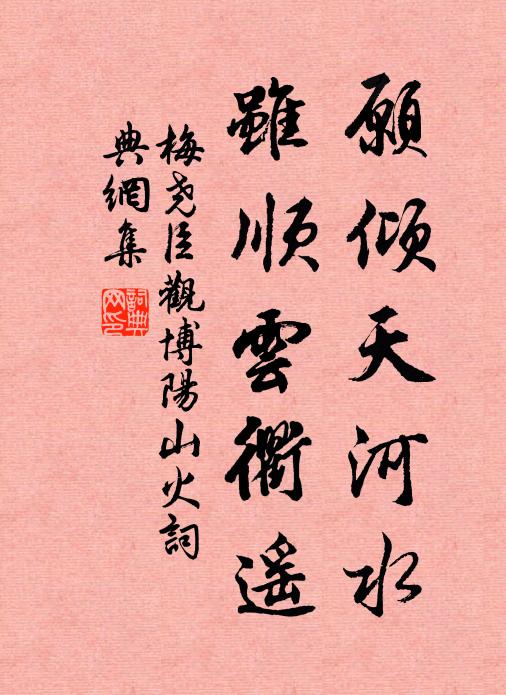 願傾天河水
雖順雲衢遥
梅尧臣觀博陽山火詞
典網集
詞典
网印